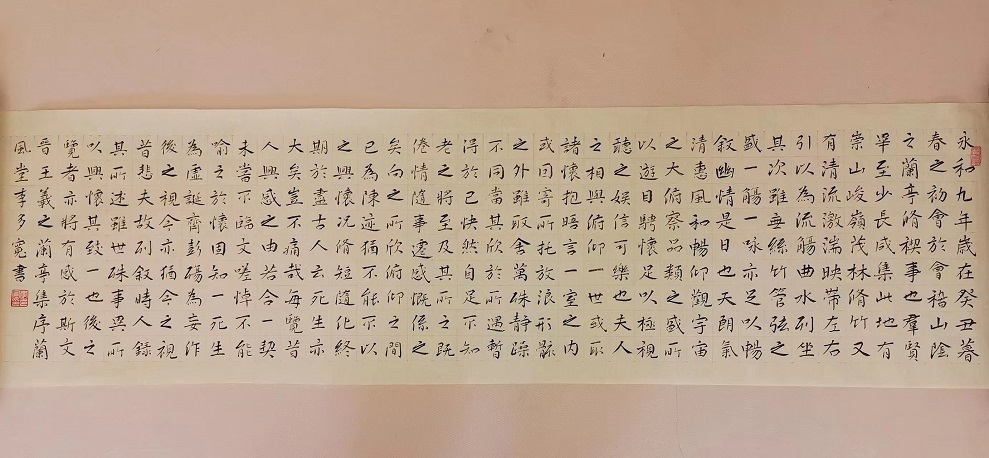 永和九年歲在癸丑暮
春之初會於會稽山陰
之蘭亭脩禊事也羣賢
畢至少長咸集此地有
崇山峻嶺茂林脩竹又
有清流激湍映帶左右
引以為流觴曲水列坐
其次雖無絲竹管弦之
盛一觴一詠亦足以暢
叙幽情是日也天朗氣
清惠風和暢仰觀宇宙
之大俯察品類之盛所
以遊目騁懷足以極視
聽之娛信可樂也夫人
之相與俯仰一世或取
諸懷抱晤言一室之內
或因寄所托放浪形骸
之外雖取舍萬殊静躁
不同當其欣於所遇暫
得於己快然自足不知
老之將至及其所之既
倦情隨事遷感慨係之
矣向之所欣俯仰之間
已為陳迹猶不能不以
之興懷況脩短隨化終
期於盡古人云死生亦
大矣豈不痛哉每覽昔
人興感之由若合一契
未嘗不臨文嗟悼不能
喻之於懷固知一死生
為虛誕齊彭殤為妄作
後之視今亦猶今之視
昔悲夫故列叙時人錄
其所述雖世殊事異所
以興懷其致一也後之
覽者亦將有感於斯文
晉王羲之蘭亭集序蘭
風堂李多寬書